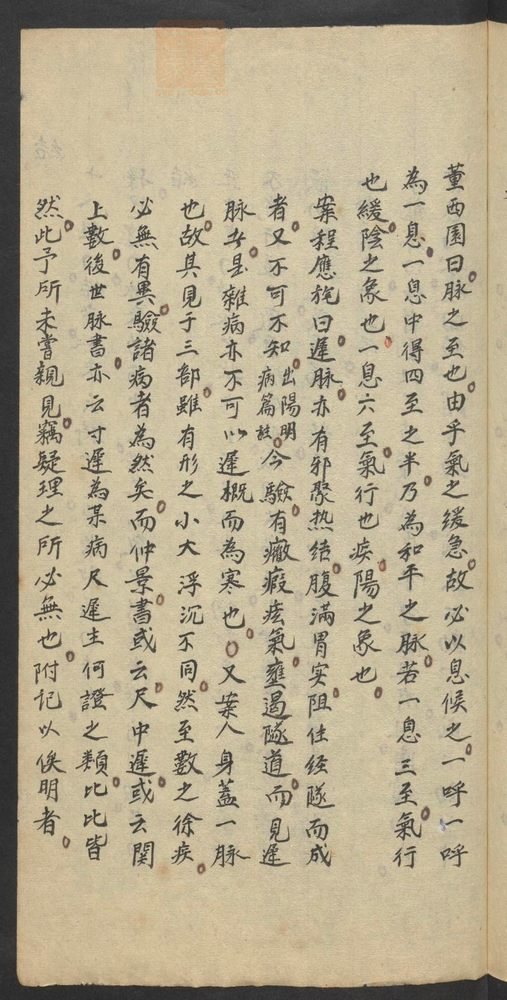 董西園曰脉之至也由乎氣之緩急故必以息候之一呼一呼
為一息一息中得四至之半乃為和平之脉若一息三至氣行
也緩陰之象也一息六至氣行也疾陽之象也
案程應旄曰遲脉亦有邪聚热结腹滿胃实阻住经隧而成
者又不可不知出陽明病篇註今驗有癥瘕痃氣壅遏隧道而見遲
脉者是雜病亦不可以遲概而為寒也○又案人身蓋一脉
也故其見于三部雖有形之小大浮沉不同然至數之徐疾
必無有異驗諸病者為然矣而仲景書或云尺中遲或云関
上數後世脉書亦云寸遲為某病尺遲主何證之類比比皆
然此予所未嘗親見竊疑理之所必無也附记以俟明者